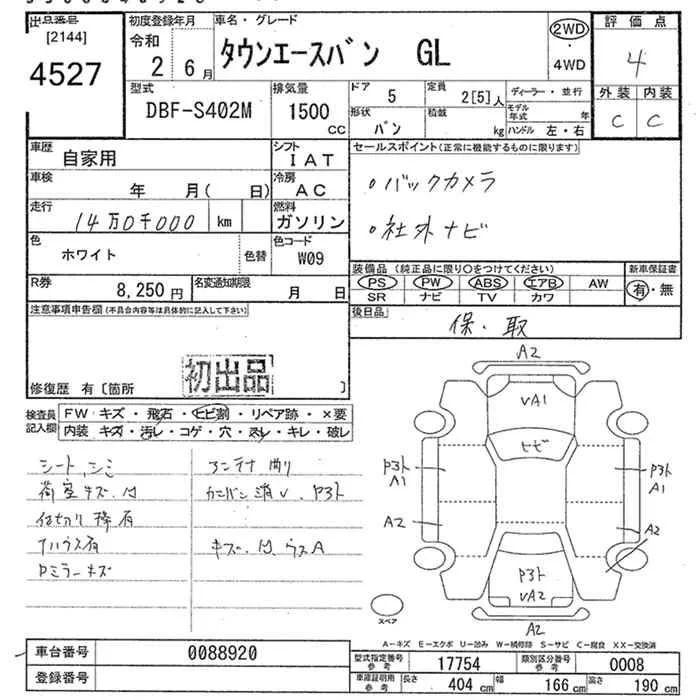 出品番号
[2144]
4527
初度登録年月
令和
2 6月
車名・グレード
タウンエースバン GL
2WD
・
4WD
評価点
4
外装 内装
C C
型式
DBF-S402M
排気量
1500
cc
ドア
5
定員
2[5]人
形状
バン
積載
kg
ディーラー・並行
モデル年式 年
ハンドル 左・右
車歴
自家用
シフト
IAT
車検
年 月( 日)
冷房
AC
走行
14万0千000 km
燃料
ガソリン
色
ホワイト
色替
色コード
W09
R券
8,250円
名変通知期限
月 日
セールスポイント(正常に機能するものに限ります)
・バックカメラ
・社外ナビ
装備品 (純正品に限り○をつけてください)
PS PW ABS エアB AW
SR ナビ TV カワ
新車保証書
有・無
後日品
保・取
注意事項申告欄(不具合内容等は具体的に記入して下さい)
初出品
修復歴 有〔箇所 〕
検査員記入欄
FW キズ・飛石・ヒビ割・リペア跡・×要
内装 キズ・汚レ・コゲ・穴・スレ・キレ・破レ
シート、シミ
荷室キズ、凹
仕切り棒有
Tハウス有
Pミラーキズ
アンテナ曲り
カンバン消V、Pヨト
キズ、凹、ウスA
A2
VA1
ヒビ
Pヨト
A1
Pヨト
A1
A2
A2
Pヨト
VA2
A2
スペア
A-キズ E-エクボ U-凹み W-補修跡 S-サビ C-腐食 XX-交換済
車台番号
0088920
登録番号
型式指定番号
参考
17754
類別区分番号
参考
0008
車庫証明用
参考
長さ
404 cm
幅
166 cm
高さ
190 cm